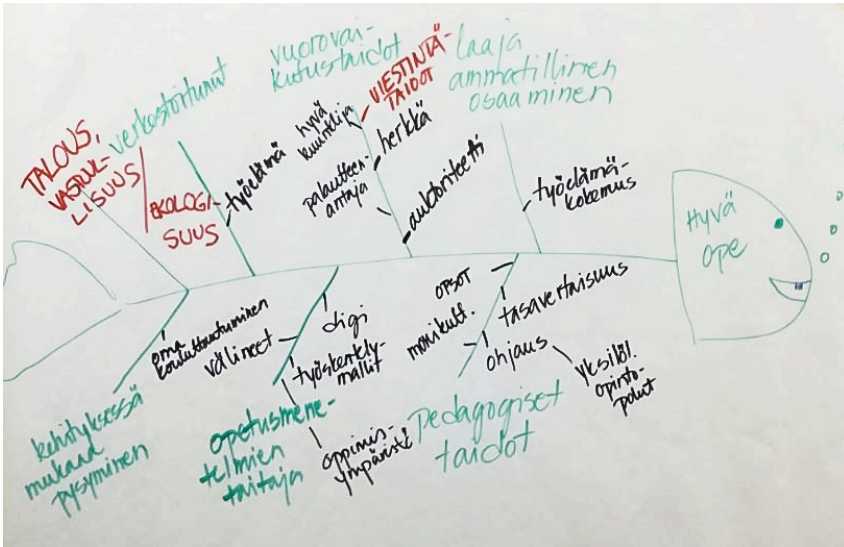 TALOUS,
VASTUUL-
LISUUS
verkostoitunut
EKOLOGI-
SUUS
työelämä
vuorovai-
kutustaidot
VIESTINTÄ-
TAIDOT
hyvä
kuuntelija
herkkä
palautteen-
antaja
auktoriteetti
laaja
ammatillinen
osaaminen
työelämä-
kokemus
Hyvä
ope
kehityksessä
mukana
pysyminen
oma
kouluttautuminen
välineet
digi
työskentely-
mallit
opetusmene-
telmien
taitaja
oppimis-
ympäristö
OPSOT
monikult.
tasavertaisuus
ohjaus
yksilöl.
opinto-
polut
Pedagogiset
taidot